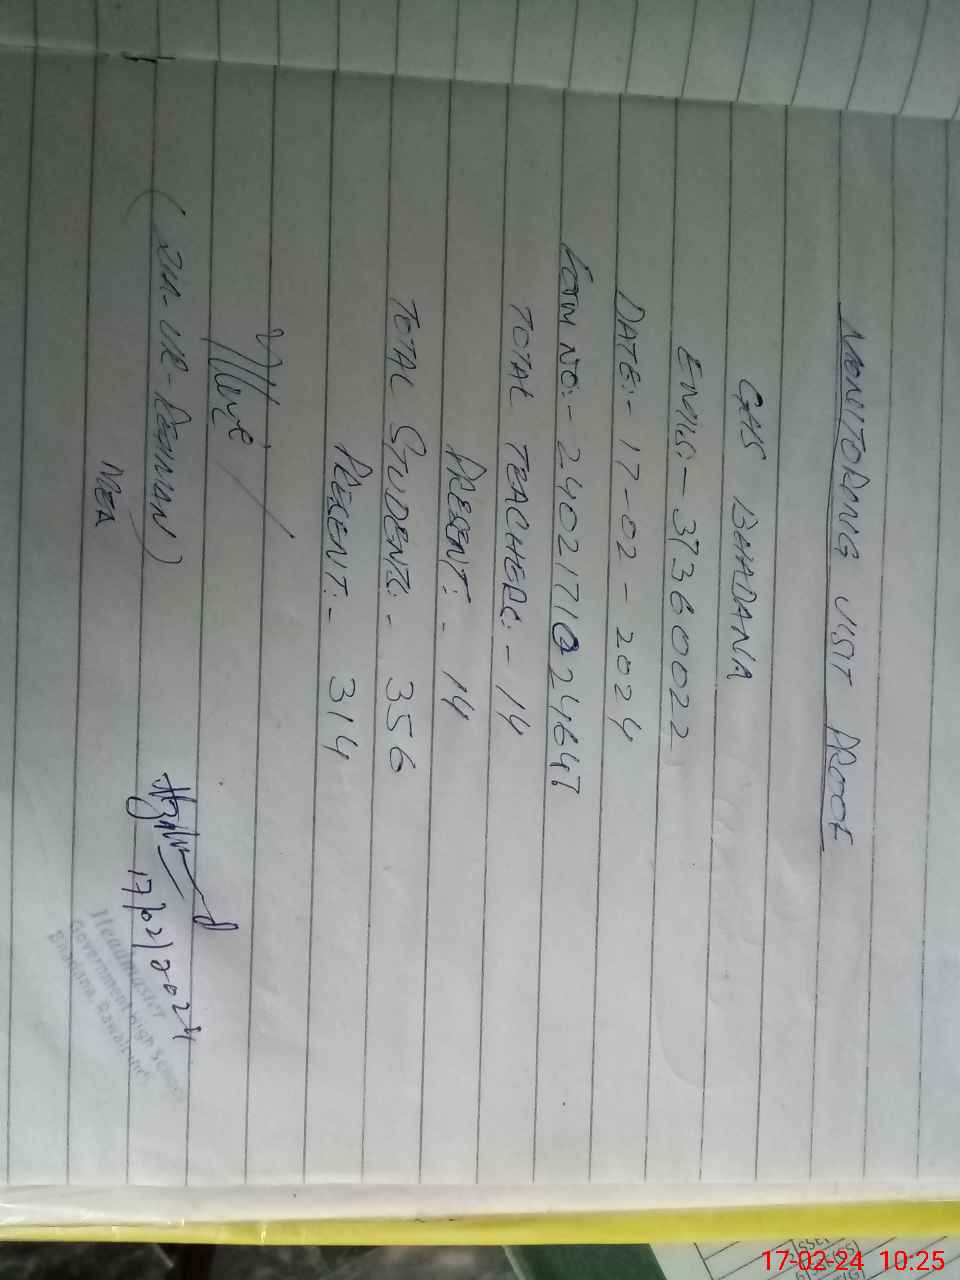 MONITORING VISIT PROOF
GHS BHADANA
EMIS:- 37360022
DATE:- 17-02-2024
FORM NO:- 2402171024647
TOTAL TEACHERS:- 14
PRESENT:- 14
TOTAL STUDENTS:- 356
PRESENT:- 314
(ZIA-UR-REHMAN)
MEA
17/02/2024
Headmaster
Government High School
Bhadana, Rawalpindi
17-02-24 10:25